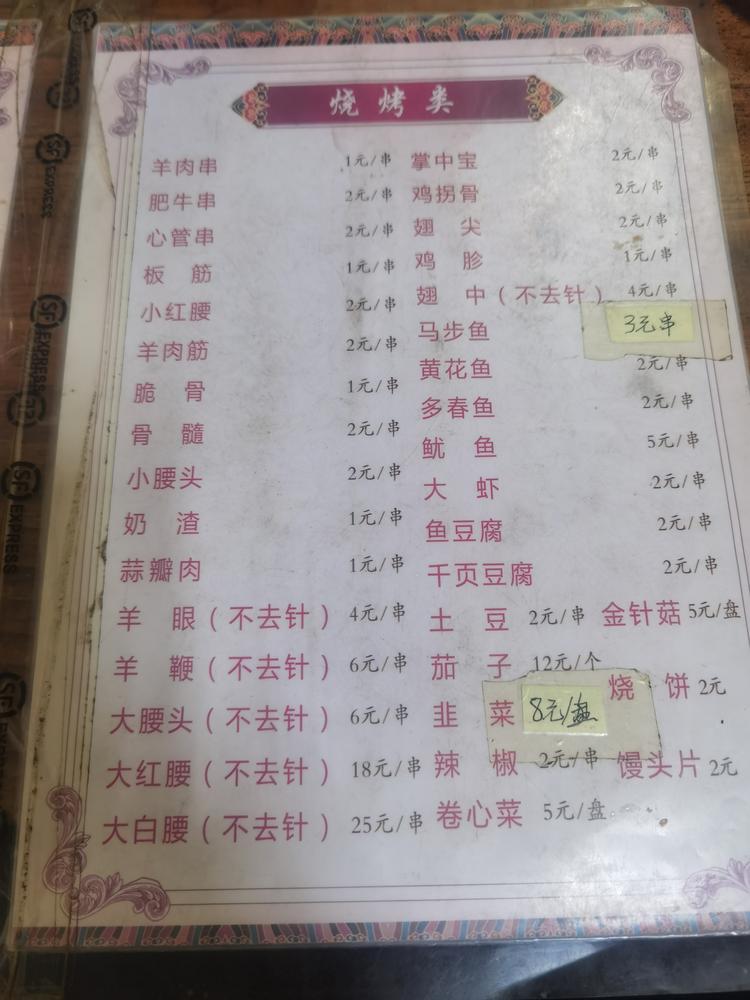 烧烤类
羊肉串 1元/串
肥牛串 2元/串
心管串 2元/串
板筋 1元/串
小红腰 2元/串
羊肉筋 2元/串
脆骨 1元/串
骨髓 2元/串
小腰头 2元/串
奶渣 1元/串
蒜瓣肉 1元/串
羊眼(不去针) 4元/串
羊鞭(不去针) 6元/串
大腰头(不去针) 6元/串
大红腰(不去针) 18元/串
大白腰(不去针) 25元/串
掌中宝 2元/串
鸡拐骨 2元/串
翅尖 2元/串
鸡胗 1元/串
翅中(不去针) 4元/串
马步鱼 3元串
黄花鱼 2元/串
多春鱼 2元/串
鱿鱼 5元/串
大虾 2元/串
鱼豆腐 2元/串
千页豆腐 2元/串
土豆 2元/串 金针菇 5元/盘
茄子 12元/个
烧饼 2元
韭菜 8元/盘
辣椒 2元/串 馒头片 2元
卷心菜 5元/盘
SF EXPRESS
SF EXPRESS
SF EXPRESS